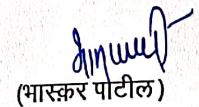 (भास्कर पाटील)